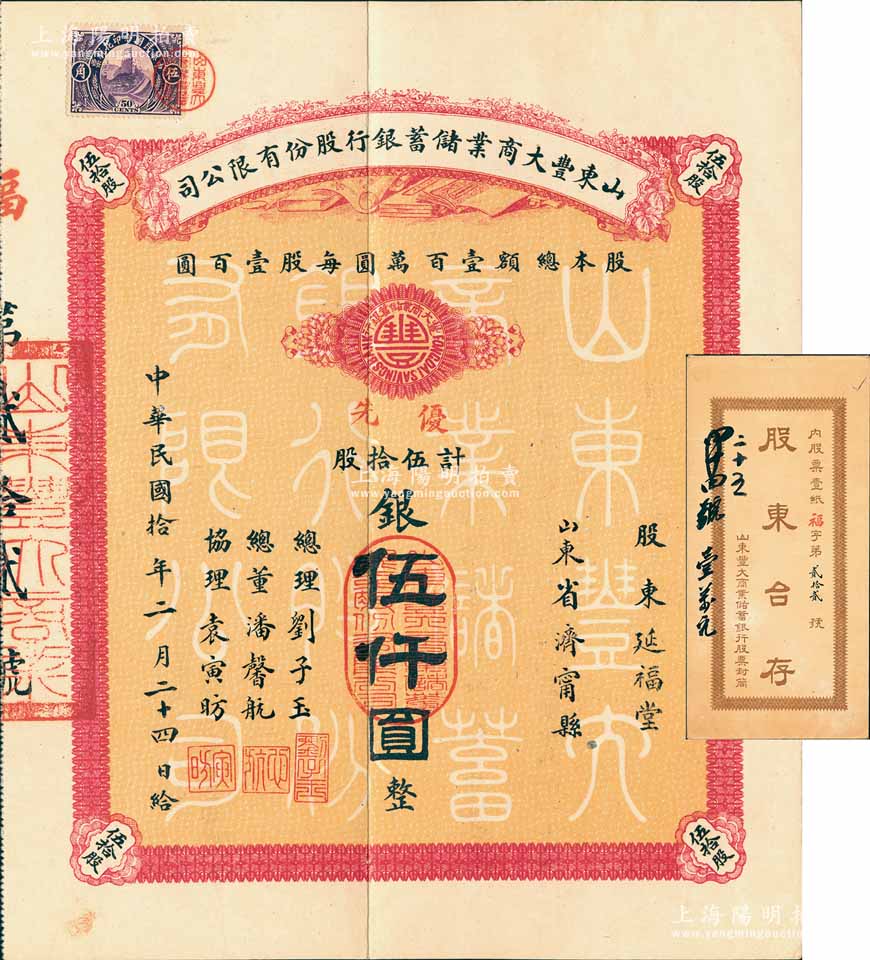 上海陽明拍賣
www.yangmingauction.com
伍
角
50
CENTS
山東豐大商業儲蓄銀行股份有限公司
伍拾股
伍拾股
股本總額壹百萬圓每股壹百圓
優先
計伍拾股
銀伍仟圓整
股東延福堂
山東省濟甯縣
總理劉子玉
總董潘馨航
協理袁寅昉
中華民國拾年二月二十四日給
伍拾股
伍拾股
福
第貳拾貳號
山東豐大商業儲蓄有限公司
內股票壹紙福字第貳拾貳號
股東台存
山東豐大商業儲蓄銀行股票封筒
二十五
壹萬元
上海陽明拍賣
www.yangmingauction.com
上海陽明拍
www.yangmingauction.com